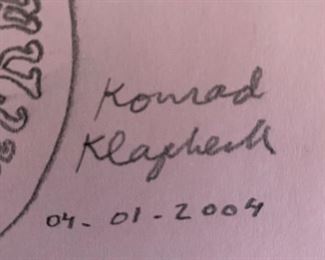 Konrad
Klapheck
04-01-2004